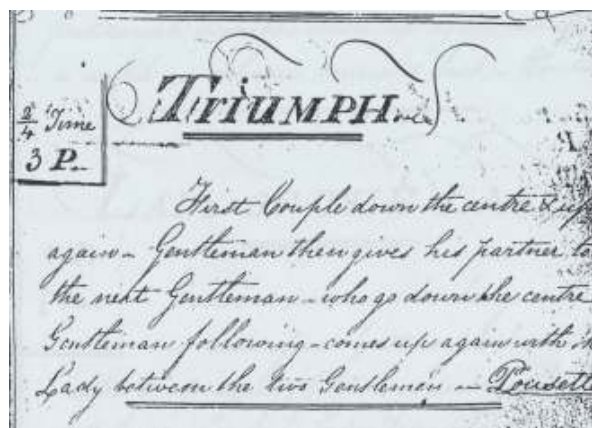 TRIUMPH
2/4 Time
3 P
First Couple down the centre & up
again - Gentleman then gives his partner to
the next Gentleman - who go down the centre
Gentleman following - comes up again with
Lady between the two Gentlemen - Pousett